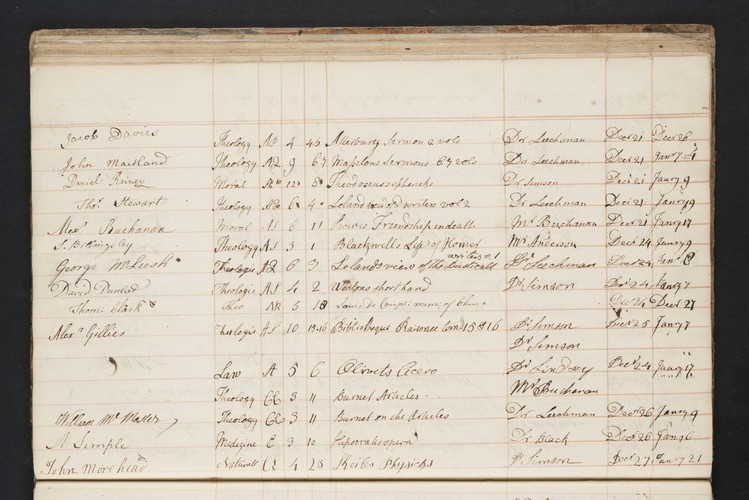 Jacob Davies Theology 4 45 Atterburys Sermon 2 vols Dr Leechman Decr 21 Decr 26
John Maitland Theology A2 9 67 Sermons 6 7 vols Dr Leechman Decr 21 Janry 7
Daniel Rainey Moral 12 8 Dr Simson Decr 21 Janry 9
Thos Stewart Theology A2 6 4 Leland view of vol 2 Dr Leechman Decr 21 Janry 9
Alexr Buchanan Moral A1 6 11 Friendship in death Mr Buchanan Decr 21 Janry 17
Theology A1 3 1 Blackwells Life of Homer Mr Anderson Decr 24 Janry 9
George Theologie A2 6 3 Lelands view of the Dr Leechman Decr 24 8
David Theologie A1 4 2 shorthand Dr Simson Decr 24 Janry 7
Thoms Clark Theo AR 5 18 Louis Le Compt of China Decr 26 Decr 27
Alexr Gillies Theologie A1 10 15 16 Bibliotheque Raisonee tom 15 & 16 Dr Simson Decr 26 Janry 7
Dr Simson
Law A 5 6 Olivets Cicero Dr Lindsey Decr 24 Janry 17
Mr Buchanan
Theology CC 3 11 Burnet Articles
William Mc Master Theology CC 3 11 Burnet on the Articles Dr Leechman Decr 26 Janry 9
A Semple Medicine E 3 10 Dr Black Decr 26 Janry 6
John Morehead Naturall 4 28 Keiles Physicks Dr Simson Decr 27 Janry 21